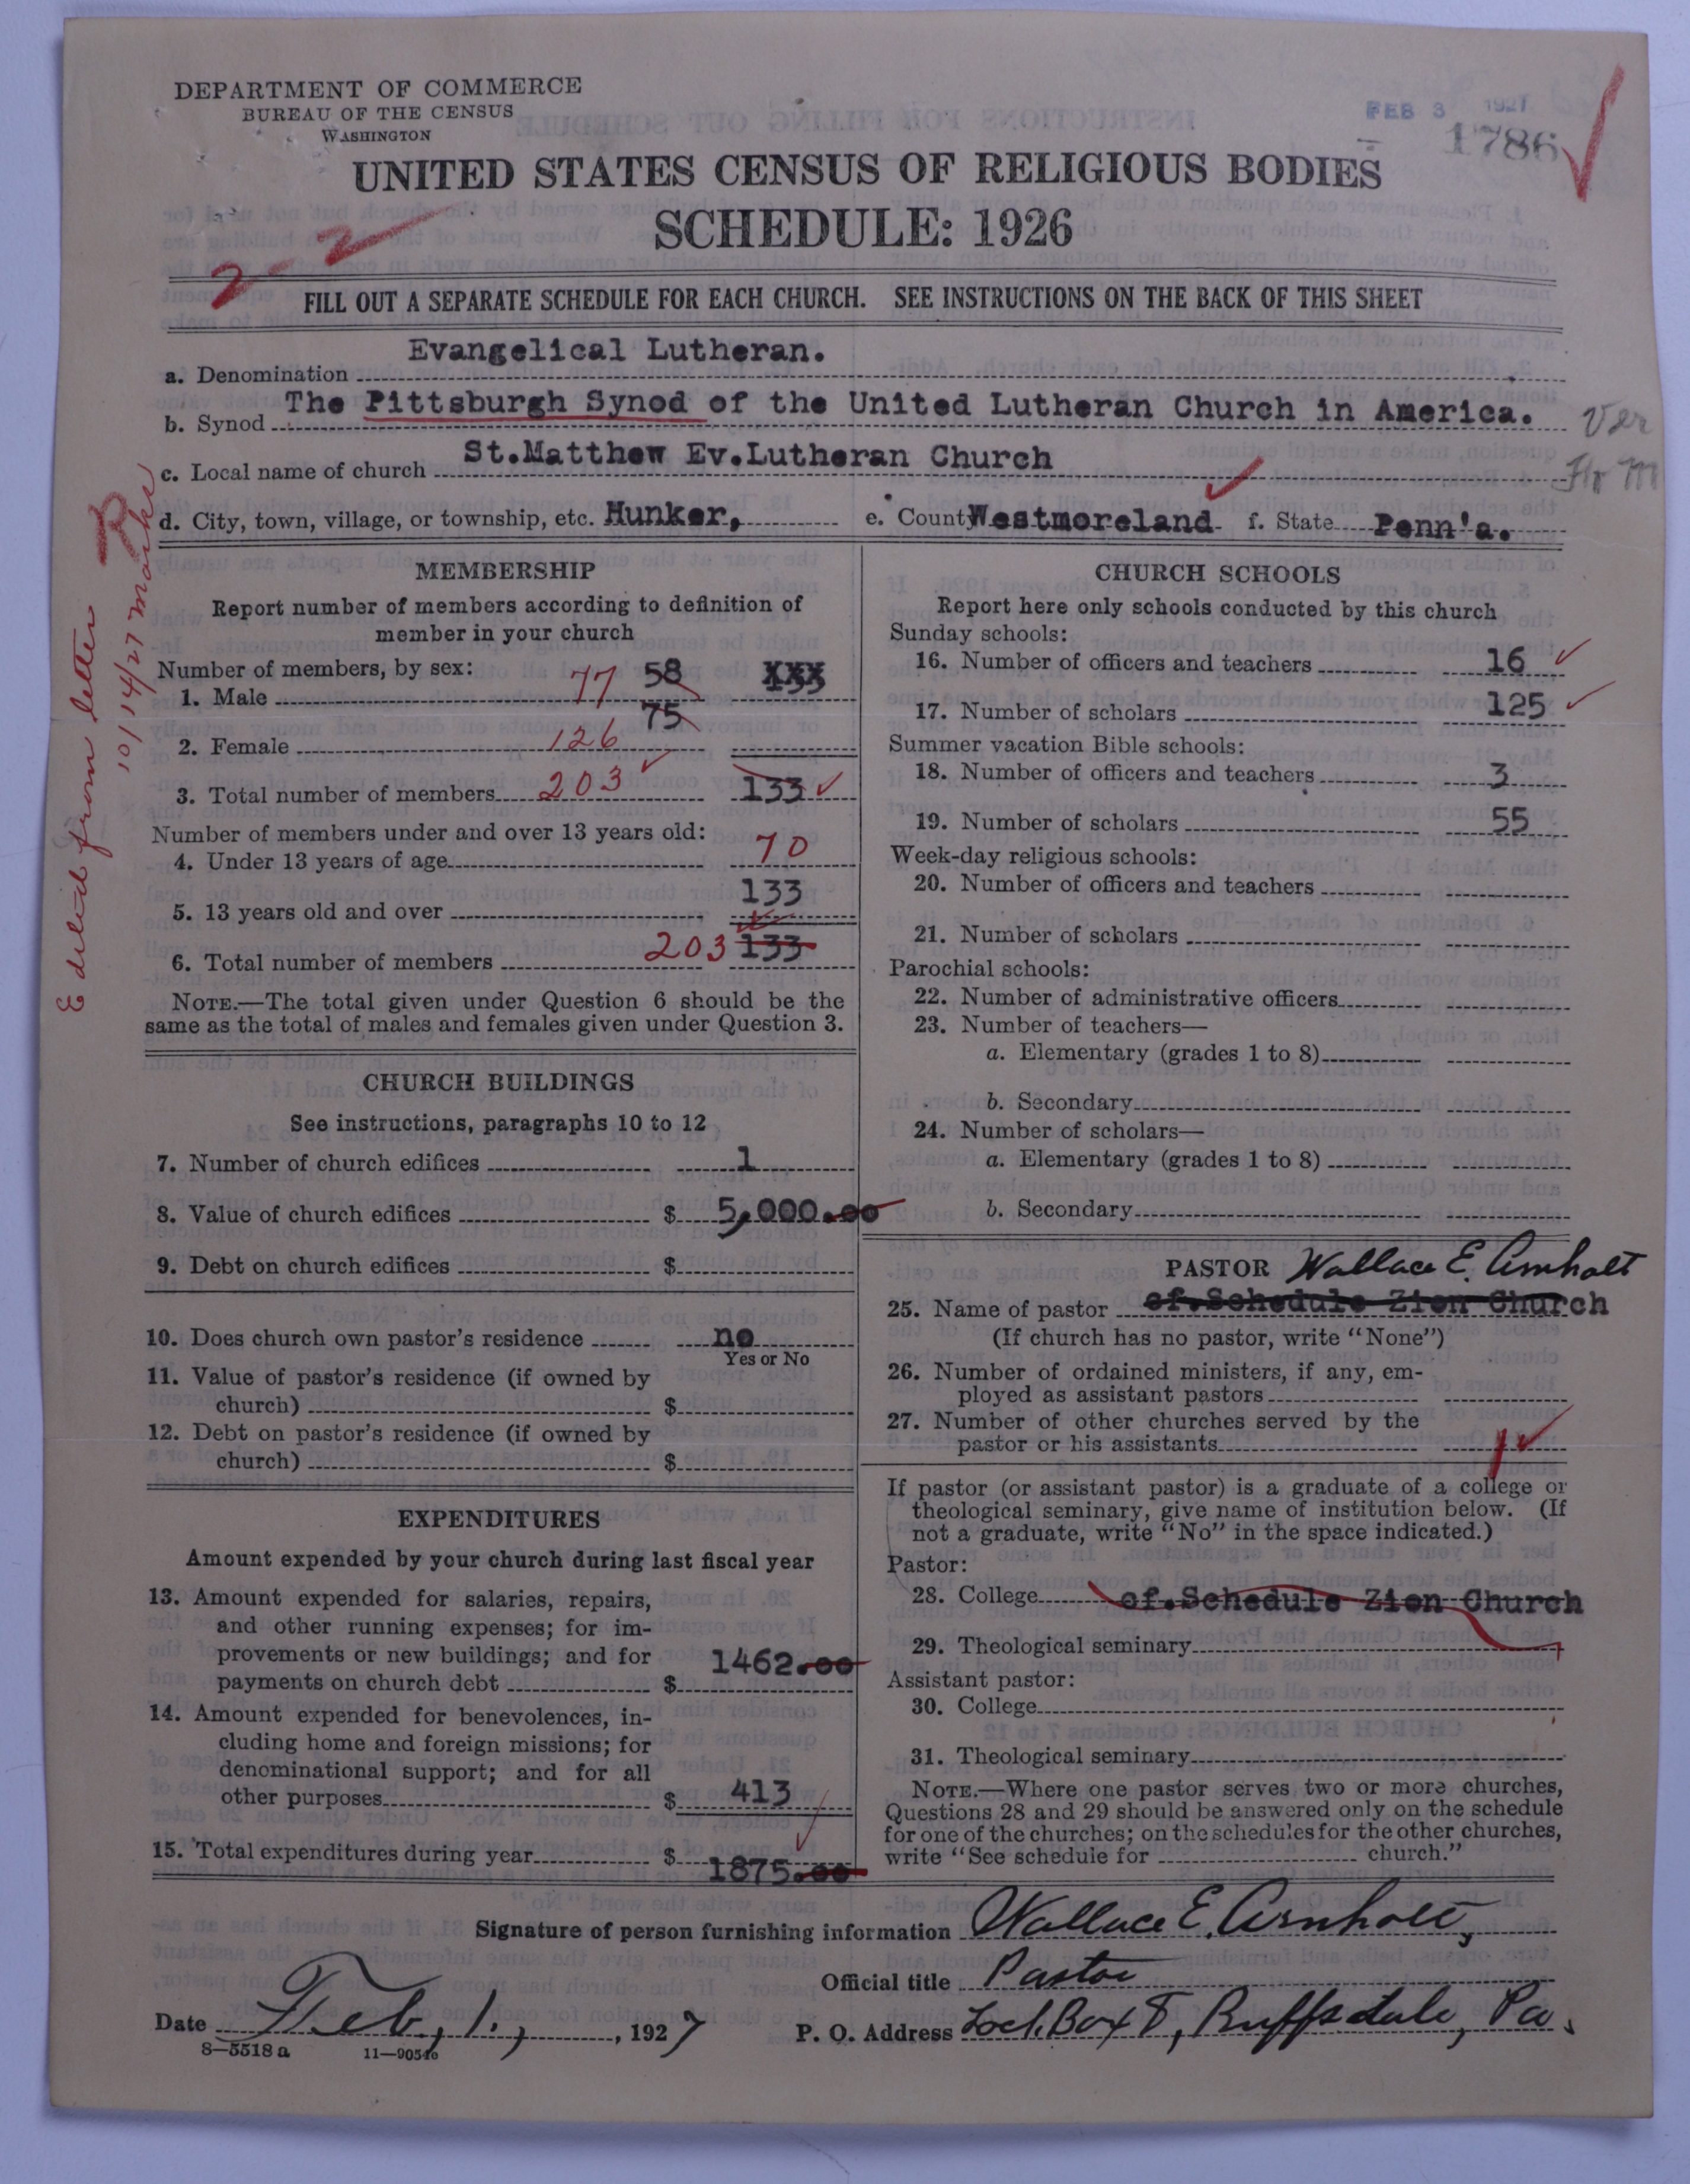 DEPARTMENT OF COMMERCE
BUREAU OF THE CENSUS
WASHINGTON
FEB 3 1927
1786
UNITED STATES CENSUS OF RELIGIOUS BODIES
SCHEDULE: 1926
2-2
FILL OUT A SEPARATE SCHEDULE FOR EACH CHURCH. SEE INSTRUCTIONS ON THE BACK OF THIS SHEET
a. Denomination Evangelical Lutheran.
b. Synod The Pittsburgh Synod of the United Lutheran Church in America.
Ver
c. Local name of church St.Matthew Ev.Lutheran Church
d. City, town, village, or township, etc. Hunker, e. County Westmoreland f. State Penn'a.
Edited from letter
10/14/27
MEMBERSHIP
Report number of members according to definition of
member in your church
Number of members, by sex:
1. Male 77 58 133
2. Female 126 75
3. Total number of members 203 133
Number of members under and over 13 years old:
4. Under 13 years of age 70
5. 13 years old and over 133
6. Total number of members 203 133
NOTE.—The total given under Question 6 should be the
same as the total of males and females given under Question 3.
CHURCH BUILDINGS
See instructions, paragraphs 10 to 12
7. Number of church edifices 1
8. Value of church edifices $ 5,000.00
9. Debt on church edifices $
10. Does church own pastor's residence no
Yes or No
11. Value of pastor's residence (if owned by
church) $
12. Debt on pastor's residence (if owned by
church) $
EXPENDITURES
Amount expended by your church during last fiscal year
13. Amount expended for salaries, repairs,
and other running expenses; for im-
provements or new buildings; and for
payments on church debt $ 1462.00
14. Amount expended for benevolences, in-
cluding home and foreign missions; for
denominational support; and for all
other purposes $ 413
15. Total expenditures during year $ 1875.00
CHURCH SCHOOLS
Report here only schools conducted by this church
Sunday schools:
16. Number of officers and teachers 16
17. Number of scholars 125
Summer vacation Bible schools:
18. Number of officers and teachers 3
19. Number of scholars 55
Week-day religious schools:
20. Number of officers and teachers
21. Number of scholars
Parochial schools:
22. Number of administrative officers
23. Number of teachers—
a. Elementary (grades 1 to 8)
b. Secondary
24. Number of scholars—
a. Elementary (grades 1 to 8)
b. Secondary
PASTOR Wallace E. Arnholt
25. Name of pastor of.Schedule Zion Church
(If church has no pastor, write "None")
26. Number of ordained ministers, if any, em-
ployed as assistant pastors
27. Number of other churches served by the
pastor or his assistants 1
If pastor (or assistant pastor) is a graduate of a college or
theological seminary, give name of institution below. (If
not a graduate, write "No" in the space indicated.)
Pastor:
28. College of.Schedule Zion Church
29. Theological seminary
Assistant pastor:
30. College
31. Theological seminary
NOTE.—Where one pastor serves two or more churches,
Questions 28 and 29 should be answered only on the schedule
for one of the churches; on the schedules for the other churches,
write "See schedule for church."
Signature of person furnishing information Wallace E. Arnholt,
Official title Pastor
Date Feb, 1., 1927 P. O. Address Lock Box T, Ruffsdale, Pa.
8—5518a 11—9054o